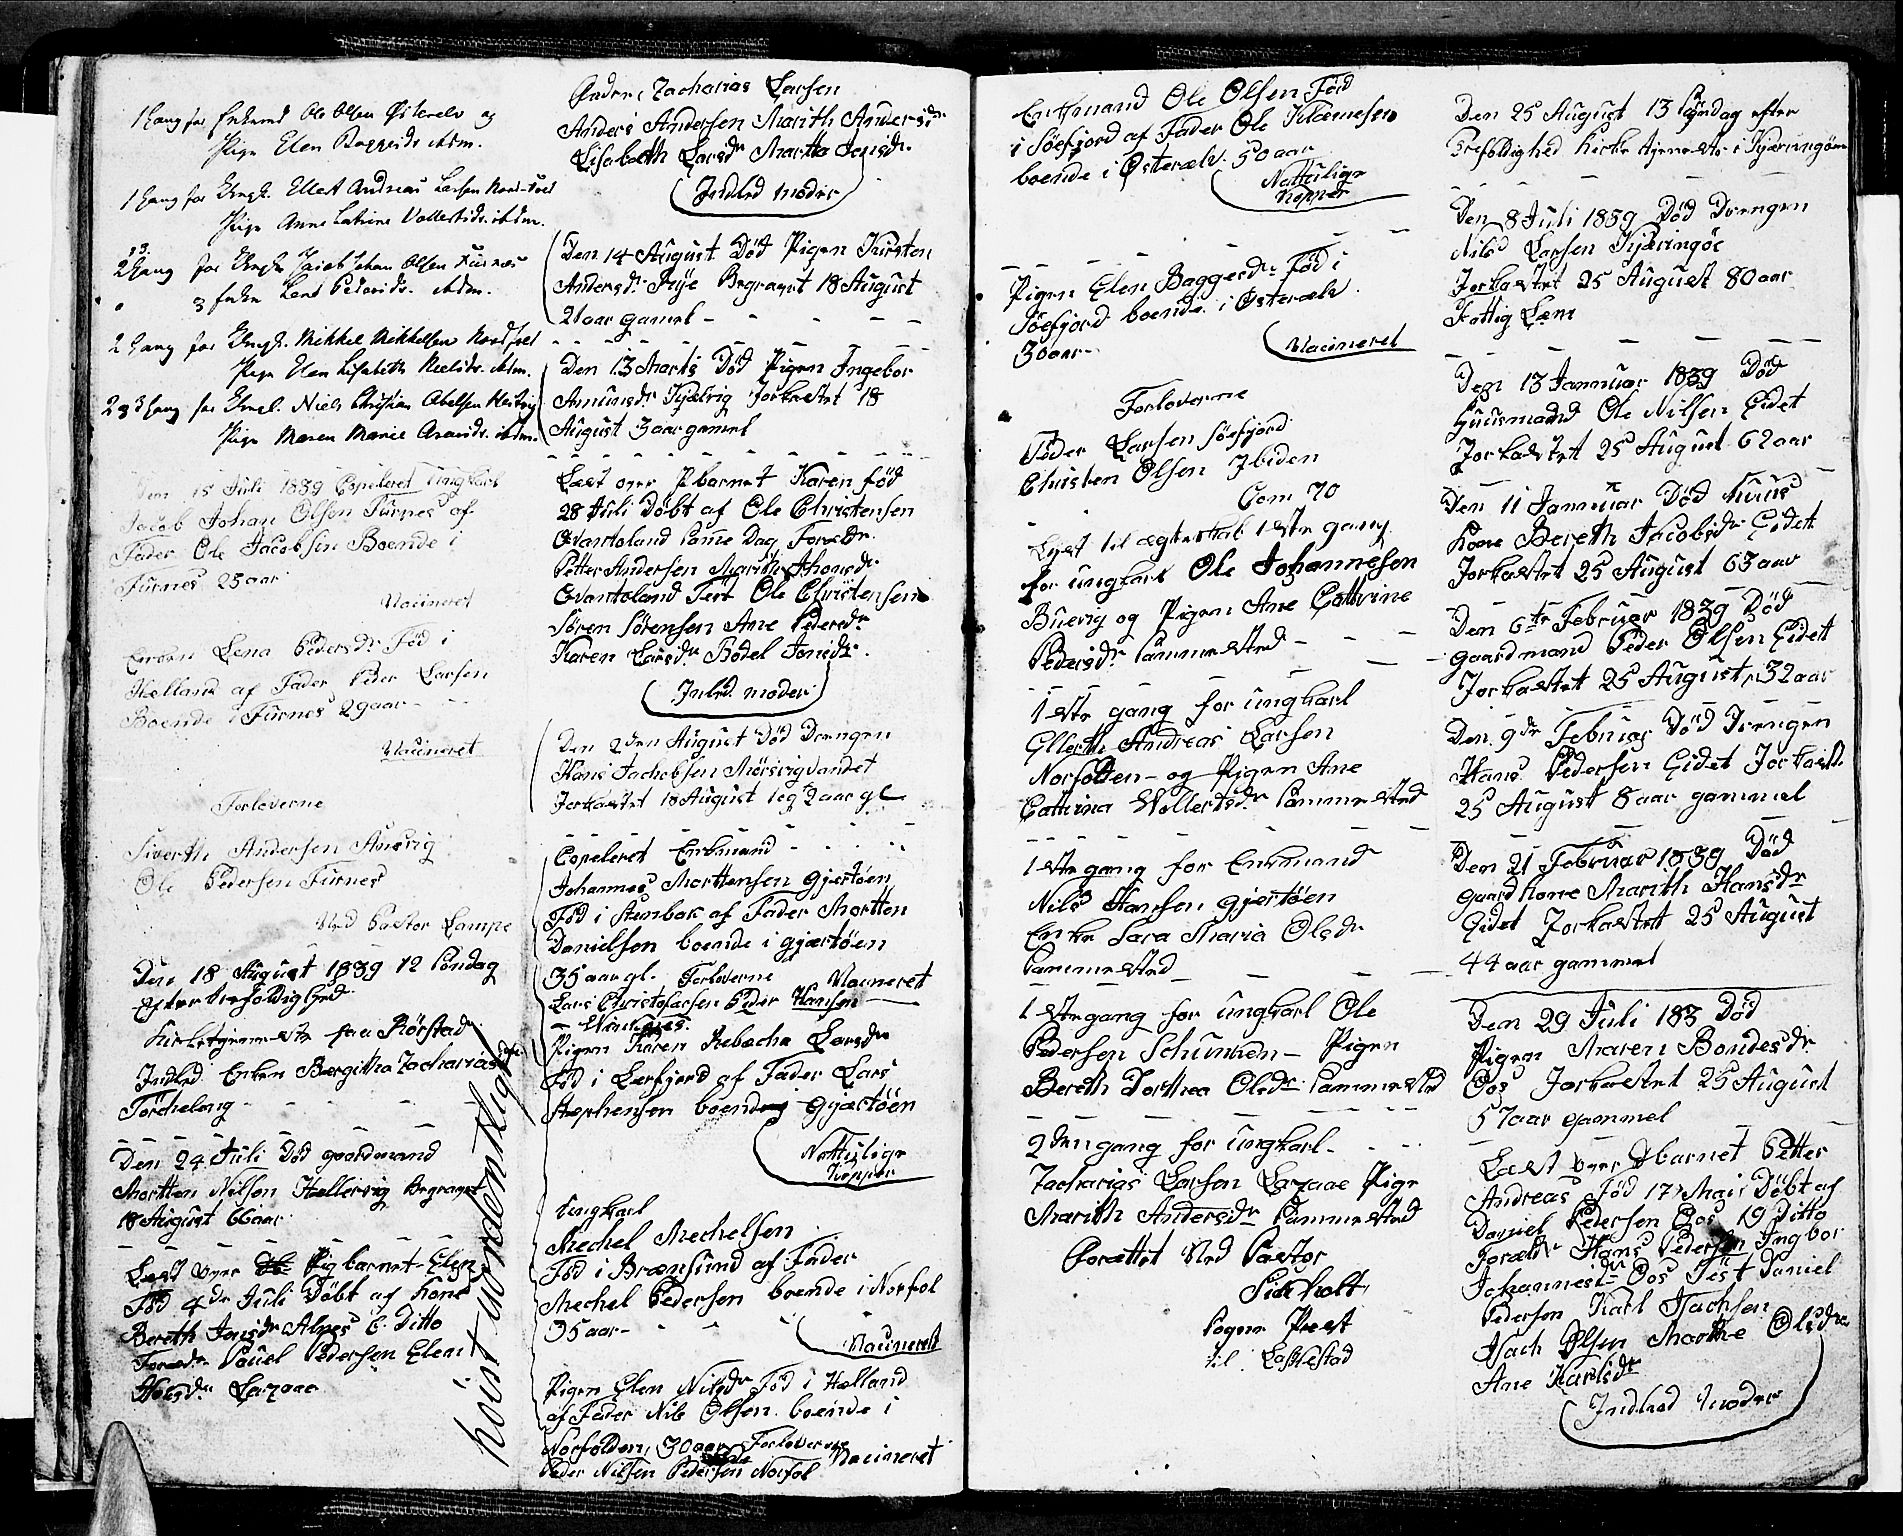 1 Gang for Enkemd Ole Olsen Østerelv og
Pige Elen Baggesdr ibdm.
1 Gang for Ungk. Ellert Andreas Larsen Nord-fold
Pige Anne Catrine Vollertsdr. ibdm.
2 Gang for Ungk. Jacob Johan Olsen Furnes
3 Enke Lena Pedersdr. ibdm.
2 Gang for Ungk. Mikkel Mikkelsen Nordfold
Pige Elen Lisabeth Nielsdr. ibdm.
2 & 3 Gang for Ungk. Niels Christian Abelsen
Pige Maren Marie ibdm.
Den 15 Juli 1839 Copeleret Ungkarl
Jacob Johan Olsen Furnes af
Fader Ole Jacobsen Boende i
Furnes 25 aar
Vacineret
Lena Pedersdr Fød i
Helland af Fader Peder Larsen
Boende i Furnes 29 aar
Vacineret
Forloverne
Siverth Andersen
Ole Pedersen Furnes
Ved Pastor Lampe
Den 18 August 1839 12 Søndag
efter trefoldighed
Kirketjeneste paa Rørstad
Indled Enken Bergitha Zachariasdr
Tørchelong
Den 24 Juli Død goardmand
Mortten Nilsen Hellervig Begravet
18 August 66 aar
Læst over Pigbarnet Elen
Fød 4de Juli Døbt af Kone
Bereth Jensdr Alpes 6 Ditto
Forældr Pouel Pedersen Elen
Larzaae
høist uordentligt
Zacharias Larsen
Anders Andersen Marith Andersdr
Lisabeth Larsdr Martha Jensdr
Indled moder
Den 14 August Død Pigen Kirsten
Andersdr Begravet 18 August
21 aar gamel
Den 13 Marts Død Pigen Ingebor
Amunsdr Kjelvig Jorkastet 18
August 3 aar gamel
Læst over Pbarnet Karen fød
28 Juli Døbt af Ole Christensen
Qvantoland Same Dag Forældr
Petter Andersen Marith
Qvantoland Test Ole Christensen
Søren Sørensen Ane Pedersdr
Karen Larsdr Bodel Jensdr.
Inled moder
Den 2den August Død Drengen
Hans Jachobsen Mørsvigvandet
Jorkastet 18 August 1 og ½ aar gl
Copeleret Enkmand
Johannes Morttensen Gjertøen
Fød i Stenbak af Fader Mortten
Danielsen boende i Gjærtøen
35 aar gl. Forloverne Vacineret
Lars Christofersen Peder Hansen
Pigen Karen Rebecha Larsdr
Fød i Leerfjord af Fader Lars
Stephensen boende Gjærtøen
Nattulige
Kopper
Ungkarl
Mechel Mechelsen
Fød i Brænsund af Fader
Mechel Pedersen boende i Norfol
35 aar
Vacineret
Pigen Elen Nilsdr Fød i Helland
af Fader Nils Olsen boende i
Norfolden, 30 aar Forloverne
Peder Nilsen Pedersen Norfol Vacineret
Enkmand Ole Olsen Fød
i Søefjord af Fader Ole Klemesen
boende i Østerælv 50 aar
Nattulige
Kopper
Pigen Elen Baggesdr Fød i
Søefjord boende i Østerælv
30 aar
Vacineret
Forloverne
Peder Larsen Søefjord
Christen Olsen Ibiden
Com 70
Lyst til ægteskab 1ste gang
for ungkarl Ole Johannesen
Buevig og Pigen Ane Cattrine
Pedersdr Sammested
1ste gang for ungkarl
Ellerth Andreas Larsen
Norfolden og Pigen Ane
Cattrina Vollertsdr Sammested
1ste gang for Enkmand
Nils Hansen Gjertøen
Enke Sara Maria Olsdr
Sammested
1ste gang for ungkarl Ole
Pedersen Pigen
Bereth Dorthea Olsdr Sammested
2den gang for ungkarl
Zacharias Larsen Larzaae Pige
Marith Andersdr Sammested
Forættet Ved Pastor
Sogne Præst
til
Den 25 August 13 Søndag efter
Trefoldighed Kirke tjeneste i Kjæringøen
Den 8 Juli 1839 Død Drengen
Nils Larsen Kjæringøe
Jorkastet 25 August 80 aar
Fattig Lem
Den 13 Januar 1839 Død
Huusmand Ole Nilsen Eidet
Jorkastet 25 August 62 aar
Den 11 Januar Død huus
Kone Bereth Jacobsdr Eidet
Jorkastet 25 August 63 aar
Den 6te Februar 1839 Død
gaardmand Peder Olsen Eidet
Jorkastet 25 August, 32 aar
Den 9de Februar Død Drengen
Hans Pedersen Eidet Jorkastet
25 August 8 aar gammel
Den 21 Februar 1839 Død
gaardkone Marith Hansdr
Eidet Jorkastet 25 August
44 aar gammel
Den 29 Juli 183 Død
Pigen Maren Bondesdr
Oos Jorkastet 25 August
57 aar gammel
Læst over Dbarnet Petter
Andreas Fød 17 Mai Døbt af
Daniel Pedersen Oos 19 Ditto
Forældr Hans Pedersen Ingbor
Johannesdr Oos Test Daniel
Pedersen Karl Isachsen
Isach Olsen Marthe Olsdr
Ane Karlsdr
Indled Moder